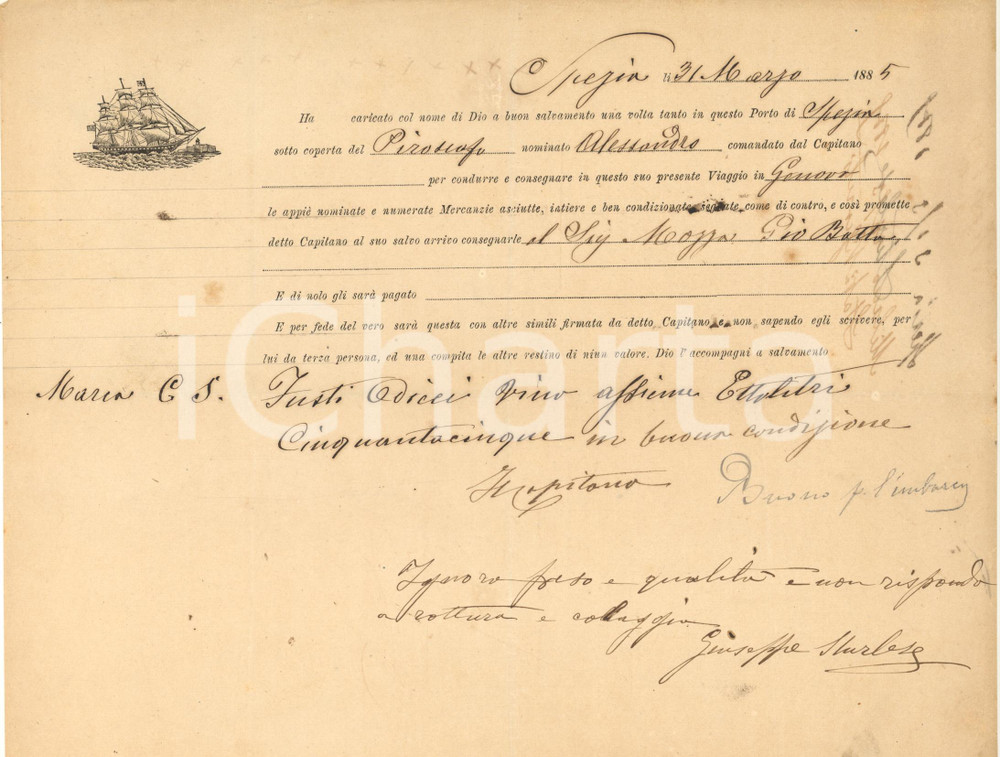 Spezia li 31 Marzo 1885
Ha caricato col nome di Dio a buon salvamento una volta tanto in questo Porto di Spezia
sotto coperta del Piroscafo nominato Alessandro comandato dal Capitano
per condurre e consegnare in questo suo presente Viaggio in Genova
le appiè nominate e numerate Mercanzie asciutte, intiere e ben condizionate segnate come di contro, e così promette
detto Capitano al suo salvo arrico consegnarle al Sig Mozza Gio Batta
E di nolo gli sarà pagato
E per fede del vero sarà questa con altre simili firmata da detto Capitano e non sapendo egli scrivere, per
lui da terza persona, ed una compita le altre restino di niun valore. Dio l'accompagni a salvamento
Marca C S. Fusti Odici vino assieme Ettolitri
Cinquantacinque in buona condizione
Il Capitano
Buono p l'imbarco
Ignoro peso e qualità e non rispondo
a rottura e colaggio
Giuseppe Sturlese
iCharta